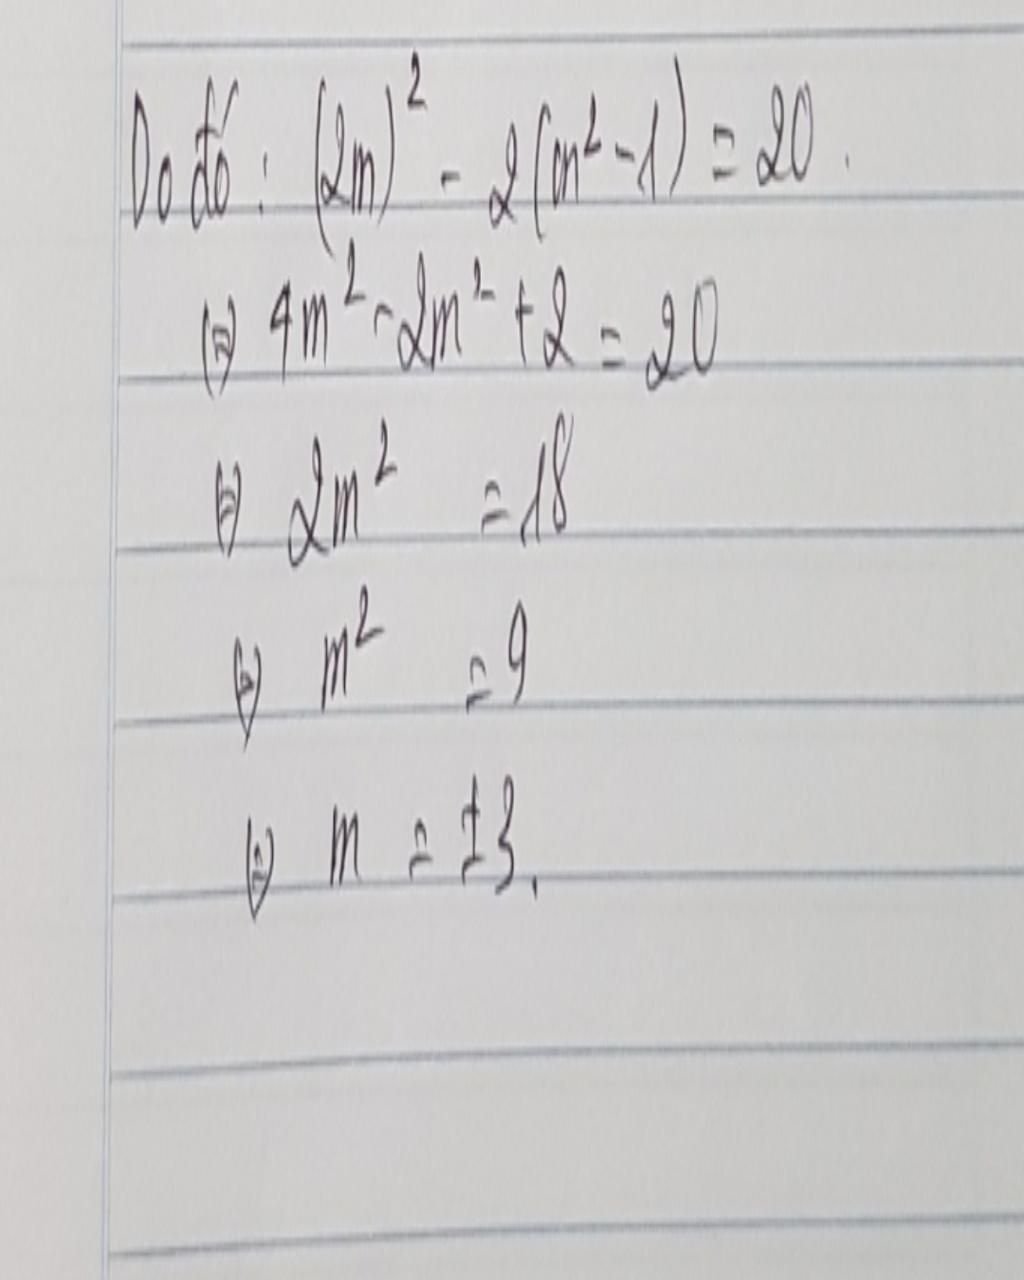 Do đó : (2m)² - 2(m² - 1) = 20.
⇔ 4m² - 2m² + 2 = 20
⇔ 2m² = 18
⇔ m² = 9
⇔ m = ±3.